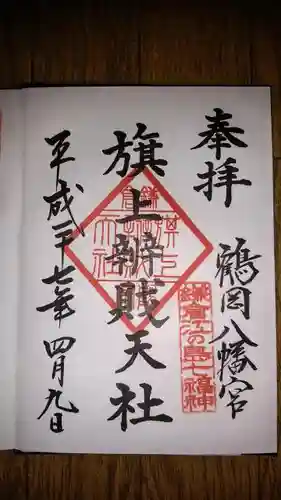 奉拝
鶴岡八幡宮
鎌倉江の島七福神
旗上辨財天社
平成二十七年 四月九日